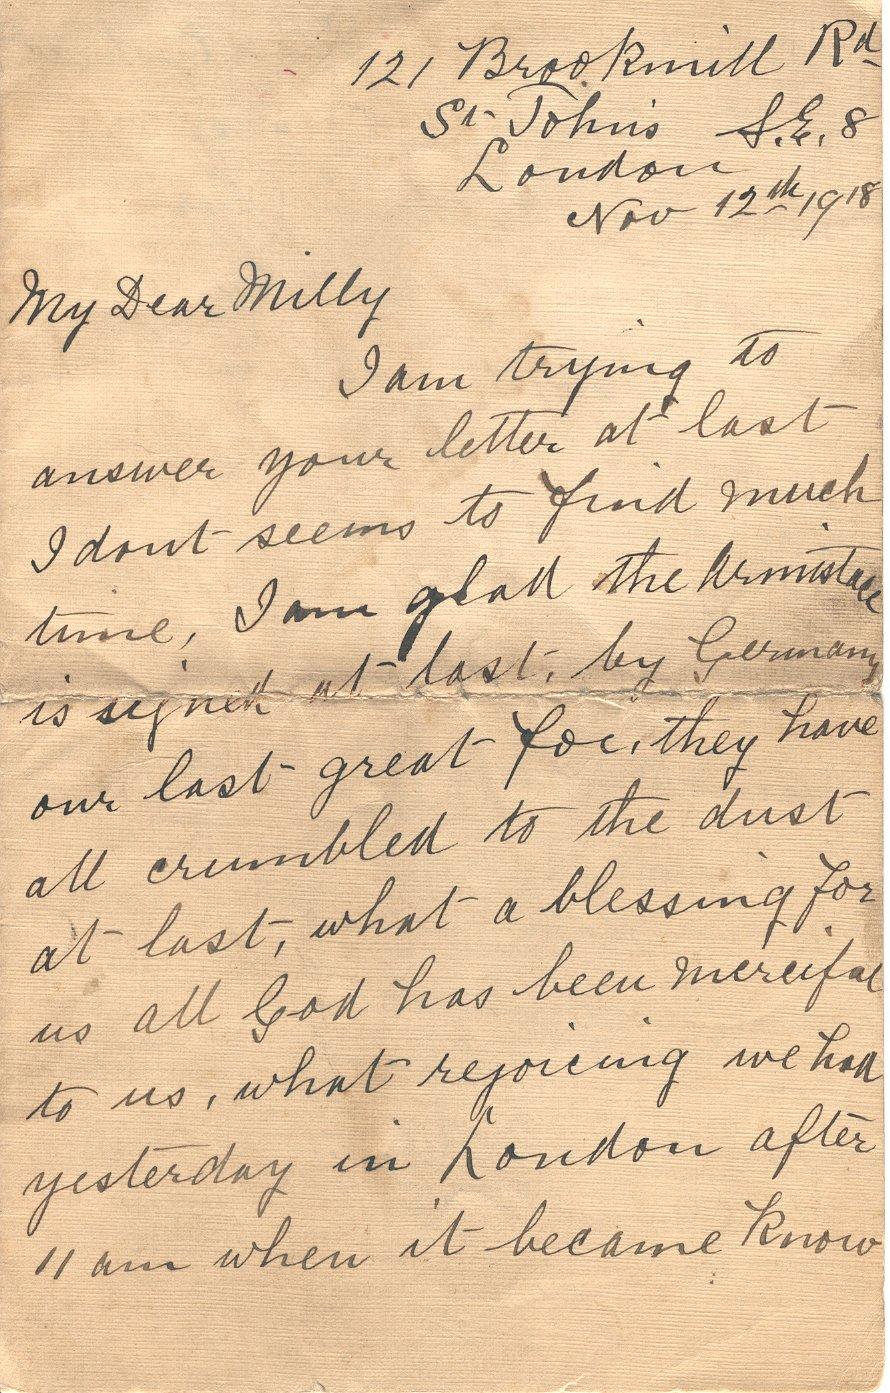 121 Brookmill Rd
St Johns S.E. 8
London
Nov 12th 1918
My Dear Milly
I am trying to
answer your letter at last
I dont seems to find much
time, I am glad the Armistace
is signed at last, by Germany
our last great foe, they have
all crumbled to the dust
at last, what a blessing for
us all God has been merciful
to us, what rejoicing we had
yesterday in London after
11 am when it became know